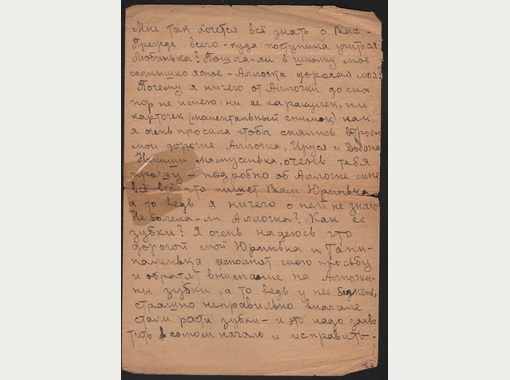 Мне так хочется всё знать о Вас -
Прежде всего - куда поступила учиться
Любинька? Пошла-ли в школу мое
солнышко ясное - Аллочка дорогая моя?
Почему я ничего от Аллочки до сих
пор не имею: ни ее каракулек, ни
карточек (моментальный снимок) как
я очень просила чтобы снялись втроем
мои дорогие Аллочка, Ируся и
Напиши мамусенька, очень тебя
прошу - подробно об Аллочке
всё что пишет Вам
а то ведь я ничего о ней не знаю
Не болела-ли Аллочка? Как ее
зубки? Я очень надеюсь что
дорогой мой и
папенька исполнят мою просьбу
и обратят внимание на Аллочки-
ны зубки, а то ведь у нее бедненькой,
страшно неправильно вначале
стали расти зубки - и это надо захва-
тить в самом начале и исправить -